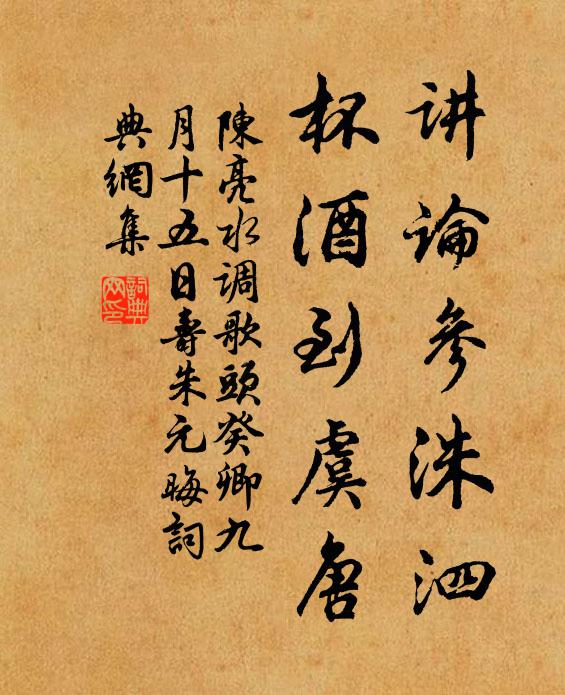 讲論參洙泗
杯酒到虞唐
陳亮水调歌頭癸卿九
月十五日壽朱元晦詞
典網集
詞典网印